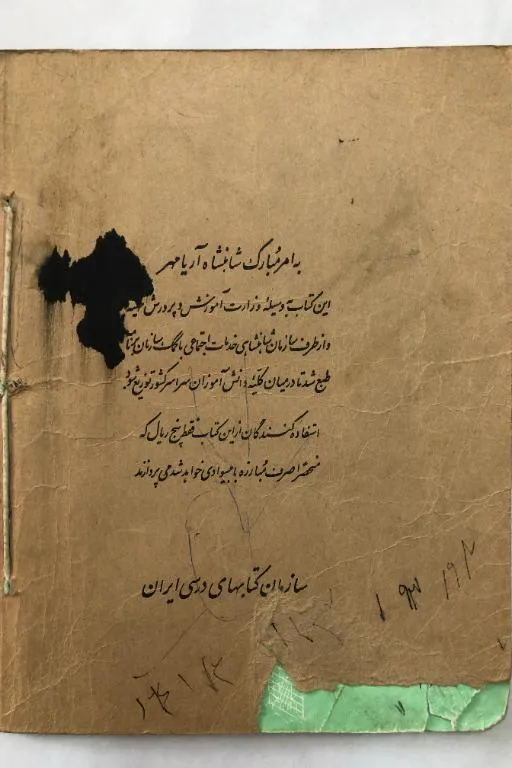 به امر مبارک شاهنشاه آریامهر
این کتاب به وسیلهٔ وزارت آموزش و پرورش تهیه
و از طرف سازمان شاهنشاهی خدمات اجتماعی با کمک سازمان
طبع شد تا در میان کلیهٔ دانش آموزان سراسر کشور توزیع شود
استفاده کنندگان از این کتاب فقط پنج ریال که
منحصراً صرف مبارزه با بیسوادی خواهد شد می پردازند
سازمان کتابهای درسی ایران